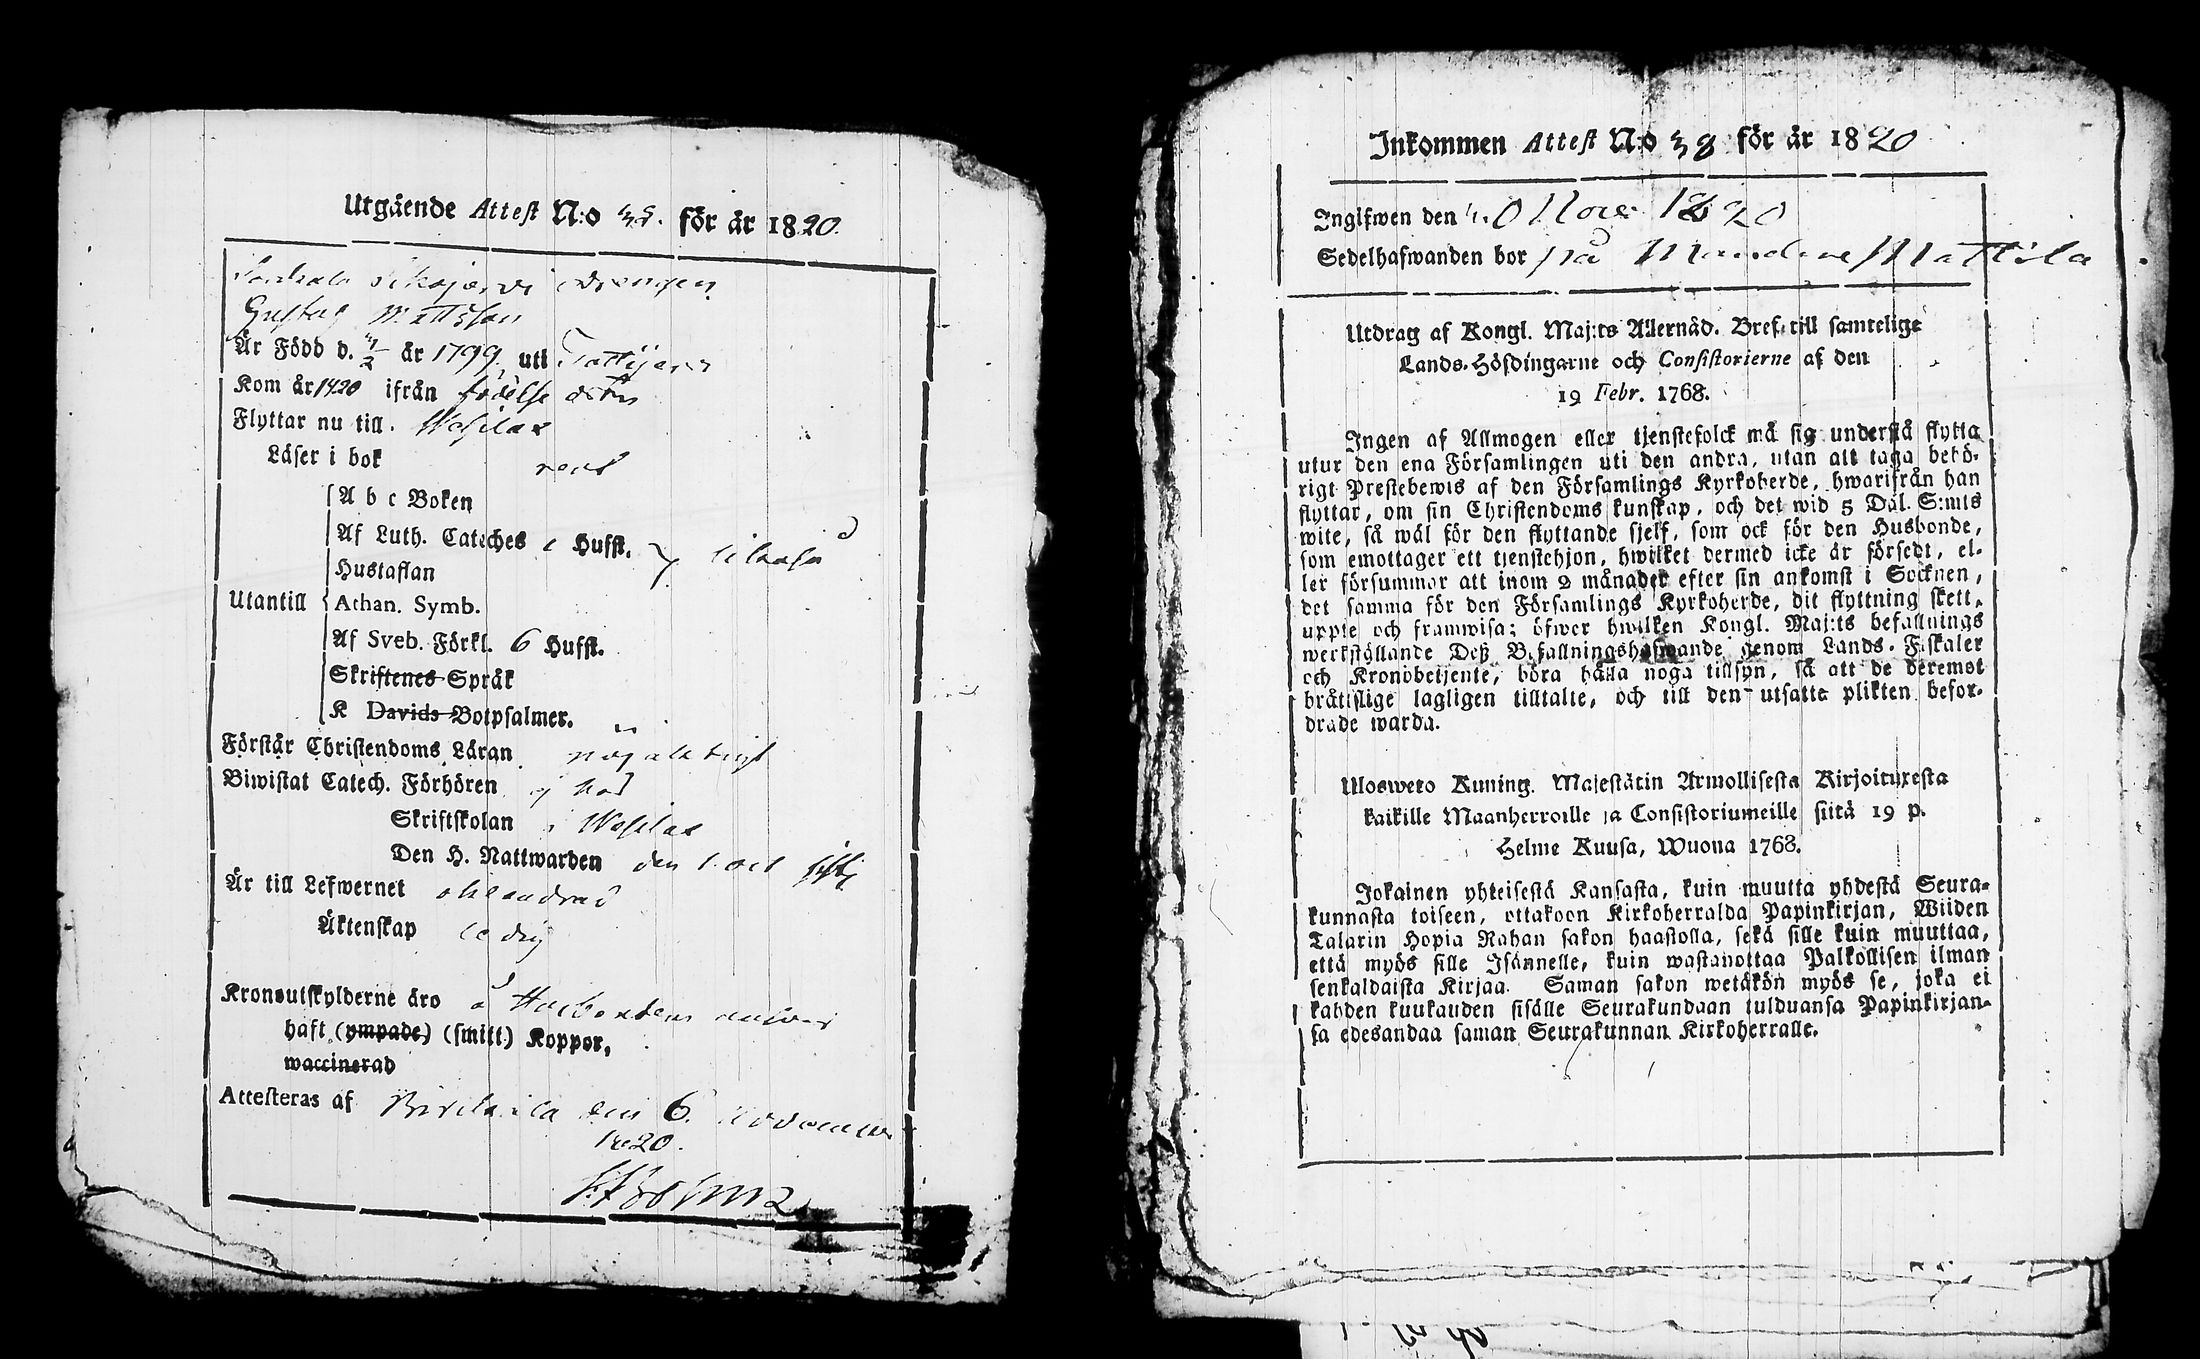 Utgående Attest N:o för år 1820.
drengen
Gustaf Mattsson
Är Född d. år 1799, uti
Kom år 1820 ifrån födelse orten
Flyttar nu till.
Läser i bok rent
A b c Boken
Af Luth. Cateches Hufst.
Hustaflan
Utantill Athan. Symb.
Af Sveb. Förkl. 6 Hufst.
Skriftenes Språk
K Davids Botpsalmer.
Förstår Christendoms Läran nöjaktigt
Biwistat Catech. Förhören
Skriftskolan i
Den H. Nattwarden den 1 Oct
Är till Lefwernet oklandrad
Äktenskap ledig
Kronoutskylderne äro å Husbondens answar
haft (ympade) (smitt) Koppor,
waccinerad
Attesteras af den 6 November
1820.
Inkommen Attest N:o 38 för år 1820
Ingifwen den Nov. 1820
Sedelhafwanden bor på Mattila
Utdrag af Kongl. Maj:ts Allernåd. Bref till samtelige
Lands-Höfdingarne och Consistorierne af den
19 Febr. 1768.
Ingen af Allmogen eller tjenstefolck må sig understå flytta
utur den ena Församlingen uti den andra, utan att taga behö-
rigt Prestebewis af den Församlings Kyrkoherde, hwarifrån han
flyttar, om sin Christendoms kunskap, och det wid 5 Dal. S:mts
wite, så wäl för den flyttande sjelf, som ock för den Husbonde,
som emottager ett tjenstehjon, hwilket dermed icke är försedt, el-
ler försummar att inom 2 månader efter sin ankomst i Socknen,
det samma för den Församlings Kyrkoherde, dit flyttning skett,
uppte och framwisa; öfwer hwilken Kongl. Maj:ts befallnings
werkställande Deß Befallningshafwande genom Lands-Fiskaler
och Kronobetjente, böra hålla noga tillsyn, så att de deremot
bråtslige lagligen tilltalte, och till den utsatta plikten befor-
drade warda.
Uloswero Kuning. Majestätin Armollisesta Kirjoituxesta
kaikille Maanherroille ja Consistoriumeille siitä 19 p.
Helme Kuusa, Wuona 1768.
Jokainen yhteisestä Kansasta, kuin muutta yhdestä Seura-
kunnasta toiseen, ottakoon Kirkoherralda Papinkirjan, Wiiden
Talarin Hopia Rahan sakon haastolla, sekä sille kuin muuttaa,
että myös sille Isännelle, kuin wastanottaa Palkollisen ilman
senkaldaista Kirjaa. Saman sakon wetäkön myös se, joka ei
kahden kuukauden sisälle Seurakundaan tulduansa Papinkirjan-
sa edesandaa saman Seurakunnan Kirkoherralle.